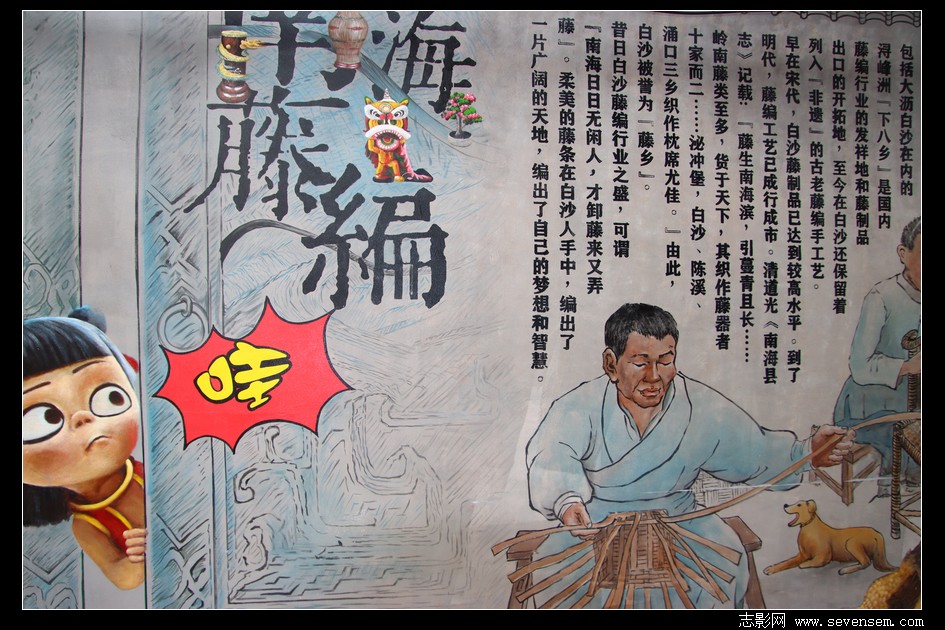 南海
藤編
哇
包括大沥白沙在内的
浔峰洲『下八乡』是国内
藤编行业的发祥地和藤制品
出口的开拓地，至今在白沙还保留着
列入『非遗』的古老藤编手工艺。
早在宋代，白沙藤制品已达到较高水平。到了
明代，藤编工艺已成行成市。清道光《南海县
志》记载：『藤生南海滨，引蔓青且长……
岭南藤类至多，货于天下，其织作藤器者
十家而二……泌冲堡，白沙、陈溪、
涌口三乡织作枕席尤佳。』由此，
白沙被誉为『藤乡』。
昔日白沙藤编行业之盛，可谓
『南海日日无闲人，才卸藤来又弄
藤』。柔美的藤条在白沙人手中，编出了
一片广阔的天地，编出了自己的梦想和智慧。
志影网 www.sevensem.com